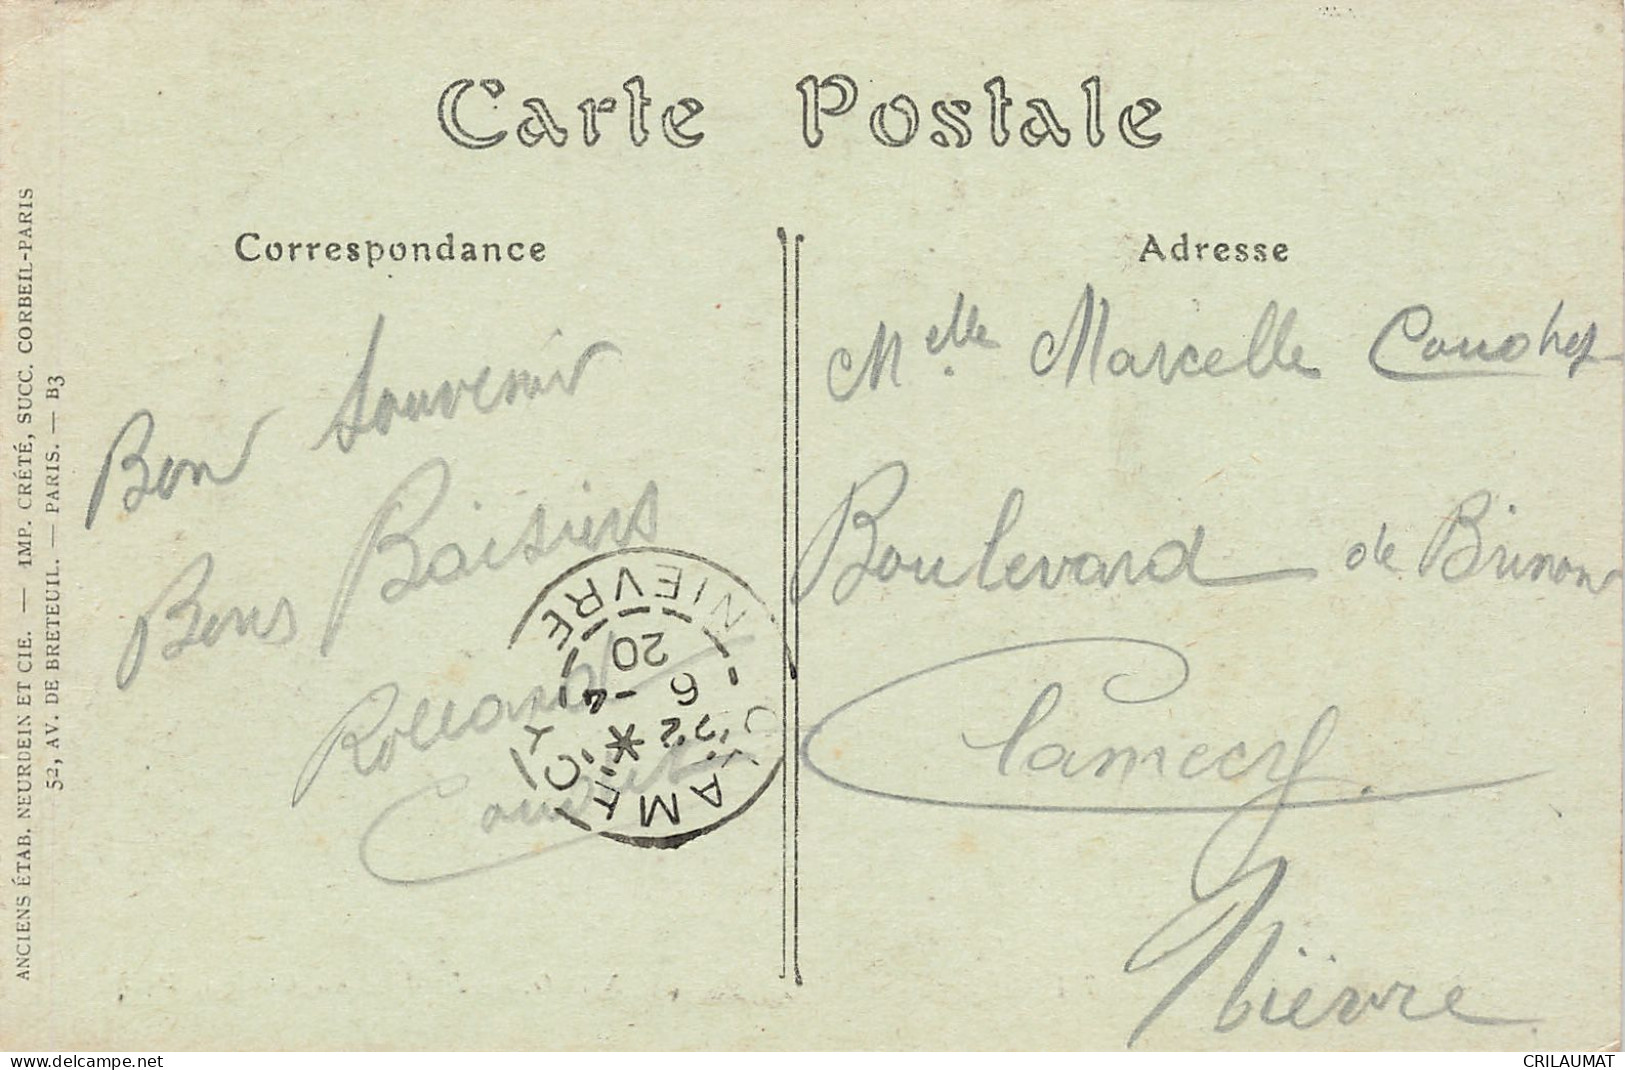 Carte Postale
Correspondance
Bon souvenir
Bons Baisiers
ANCIENS ÉTAB. NEURDEIN ET CIE. — IMP. CRÉTÉ, SUCC. CORBEIL-PARIS
52, AV. DE BRETEUIL. — PARIS. — B3
NIEVRE
20
6 - 4
22
*
CLAMECY
Adresse
Melle Marcelle
Boulevard de Brinon
Clamecy.
Nièvre
www.delcampe.net
CRILAUMAT